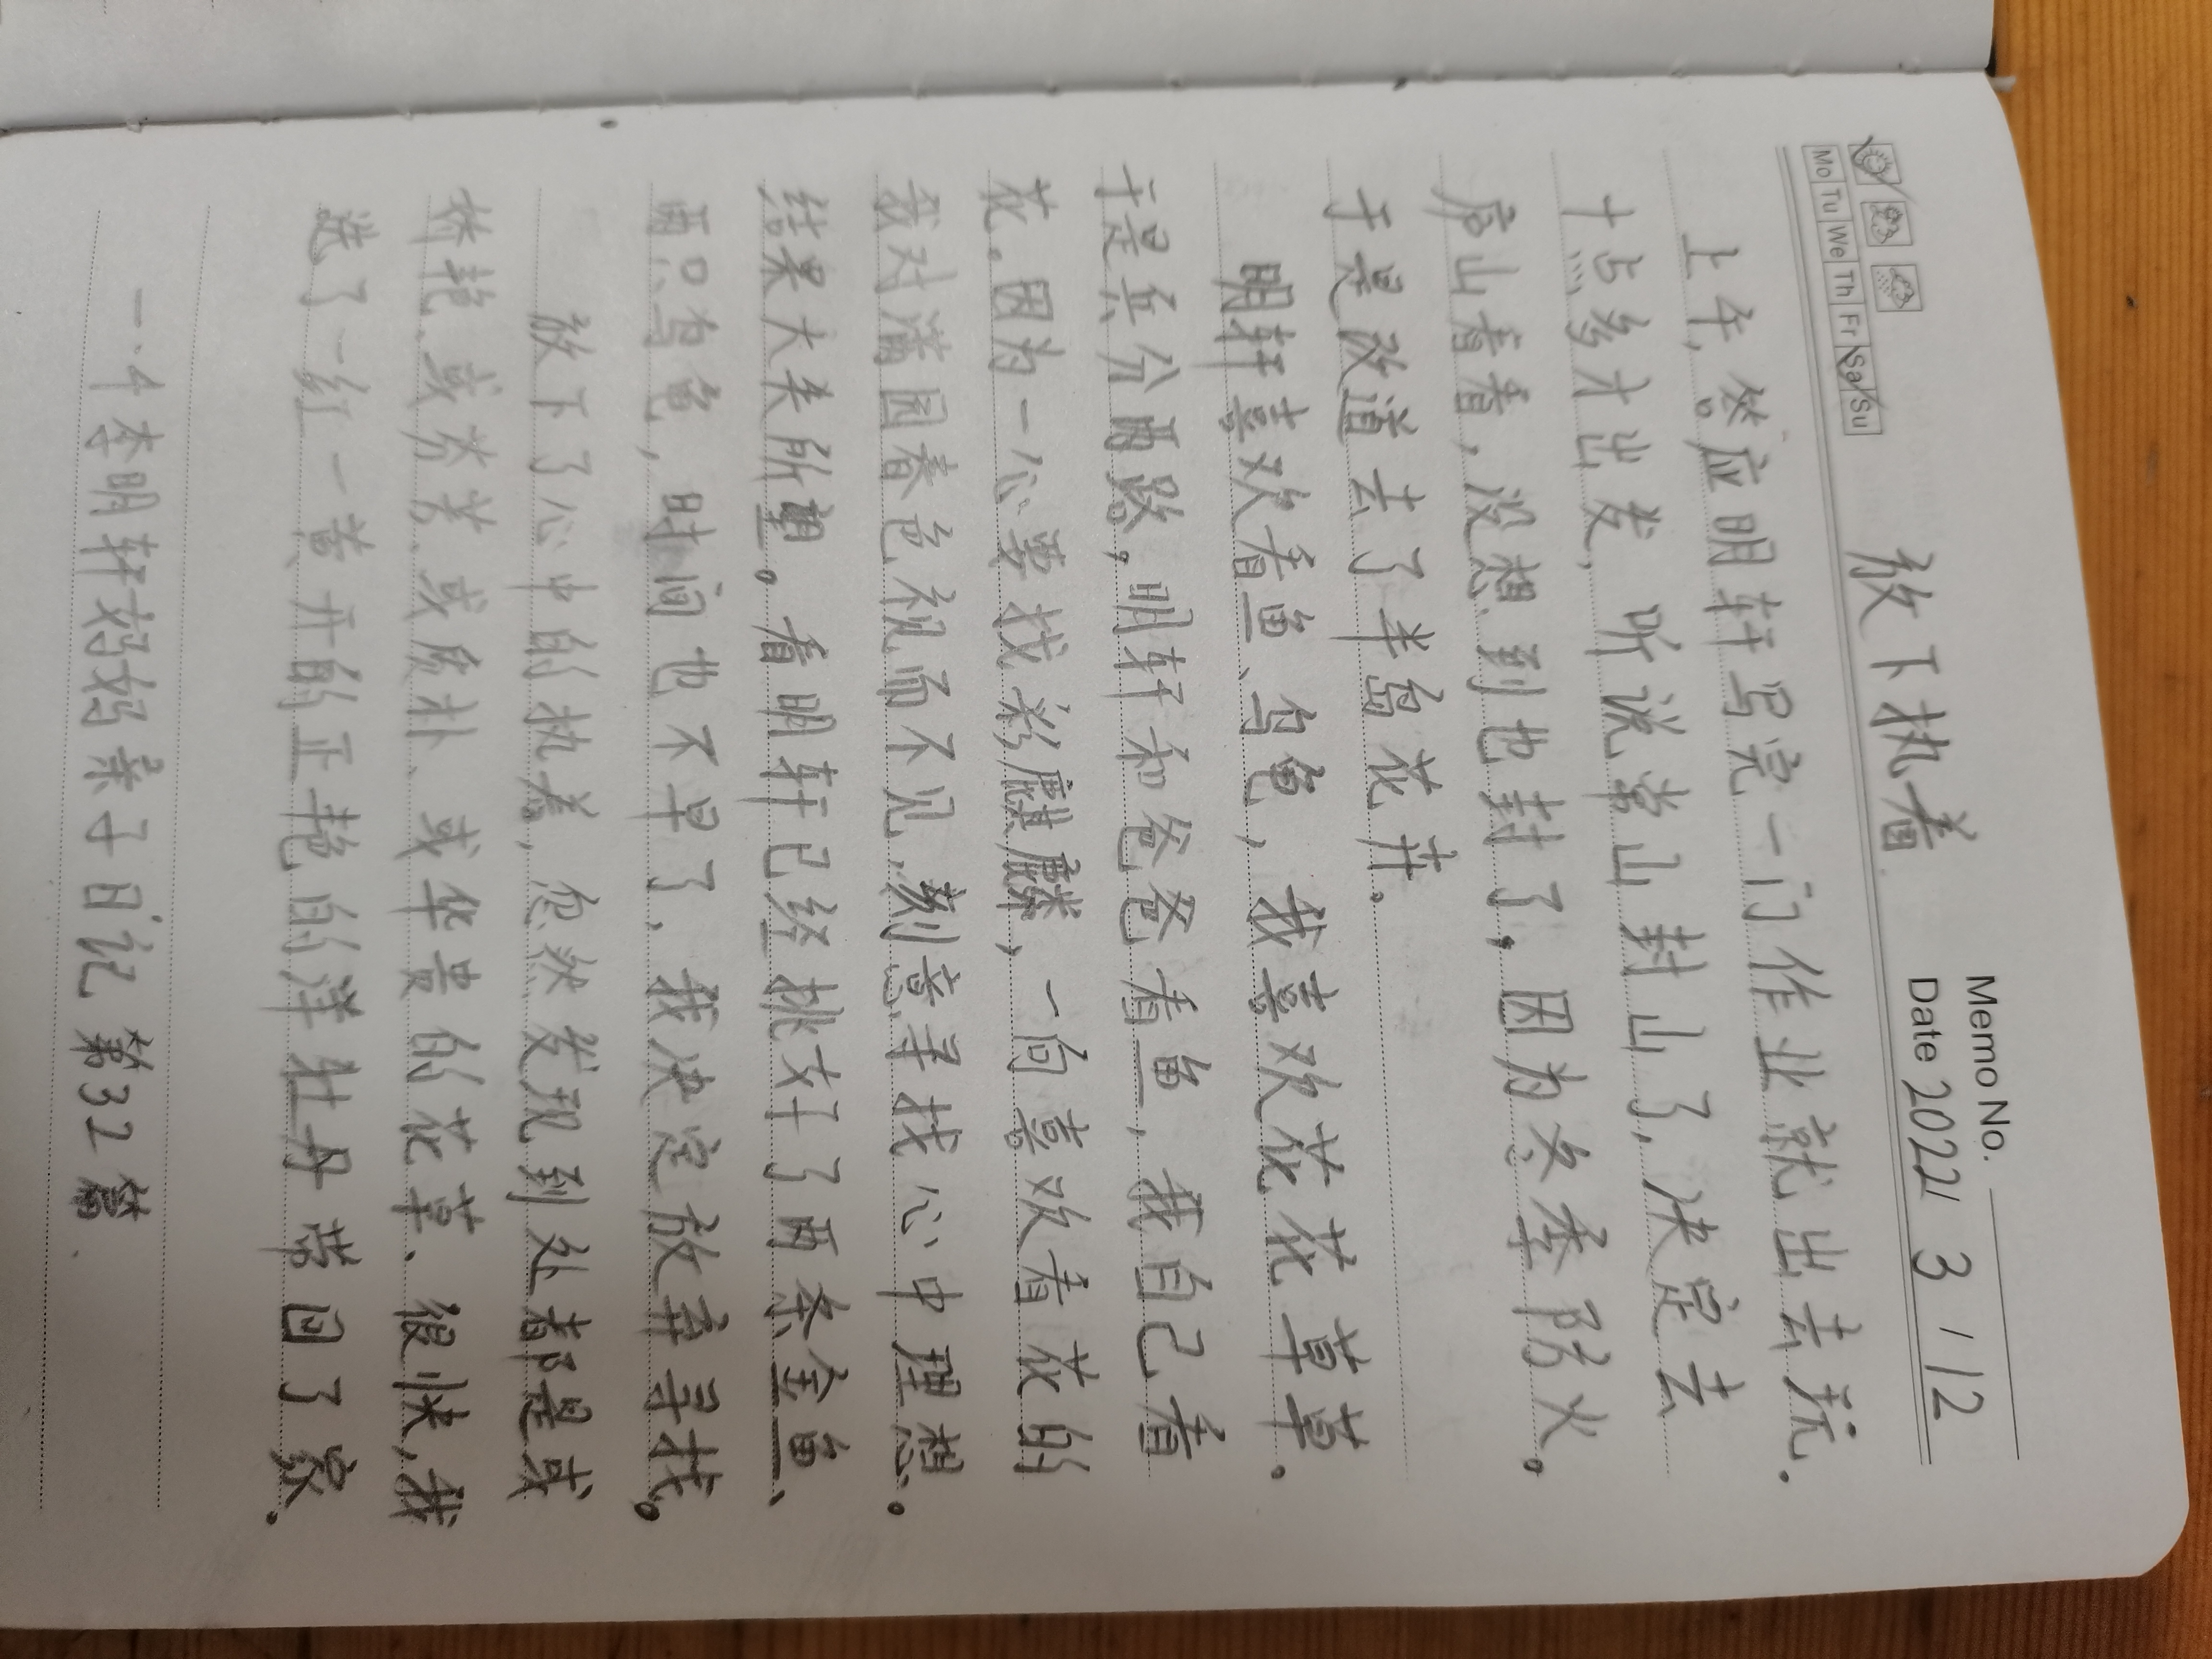 Memo No.
Mo Tu We Th Fr Sa Su
Date 2022 / 3 / 12
放下执着
上午,答应明轩写完一门作业就出去玩.
十点多才出发,听说常山封山了,决定去
庐山看看,没想到也封了,因为冬季防火。
于是改道去了半岛花卉。
明轩喜欢看鱼、乌龟,我喜欢花花草草.
于是兵分两路,明轩和爸爸看鱼,我自己看
花。因为一心要找彩麒麟,一向喜欢看花的
我对满园春色视而不见,刻意寻找心中理想。
结果大失所望。看明轩已经挑好了两条金鱼、
两只乌龟,时间也不早了,我决定放弃寻找。
放下了心中的执着,忽然发现到处都是或
娇艳、或芬芳、或质朴、或华贵的花草、很快,我
选了一红一黄开的正艳的洋牡丹带回了家.
一.4李明轩妈妈亲子日记 第32篇.